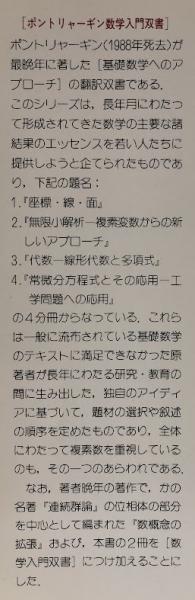 [ポントリャーギン数学入門双書]
ポントリャーギン(1988年死去)が
最晩年に著した［基礎数学へのア
プローチ］の翻訳双書である．
このシリーズは，長年月にわたっ
て形成されてきた数学の主要な諸
結果のエッセンスを若い人たちに
提供しようと企てられたものであ
り，下記の題名：
1.『座標・線・面』
2.『無限小解析―複素変数からの新
しいアプローチ』
3.『代数―線形代数と多項式』
4.『常微分方程式とその応用―工
学問題への応用』
の４分冊からなっている．これら
は一般に流布されている基礎数学
のテキストに満足できなかった原
著者が長年にわたる研究・教育の
間に生み出した，独自のアイディ
アに基づいて，題材の選択や叙述
の順序を定めたものであり，全体
にわたって複素数を重視している
のも，その一つのあらわれである．
なお，著者晩年の著作で，かの
名著『連続群論』の位相体の部分
を中心として編まれた『数概念の
拡張』および，本書の２冊を［数
学入門双書］につけ加えることに
した．